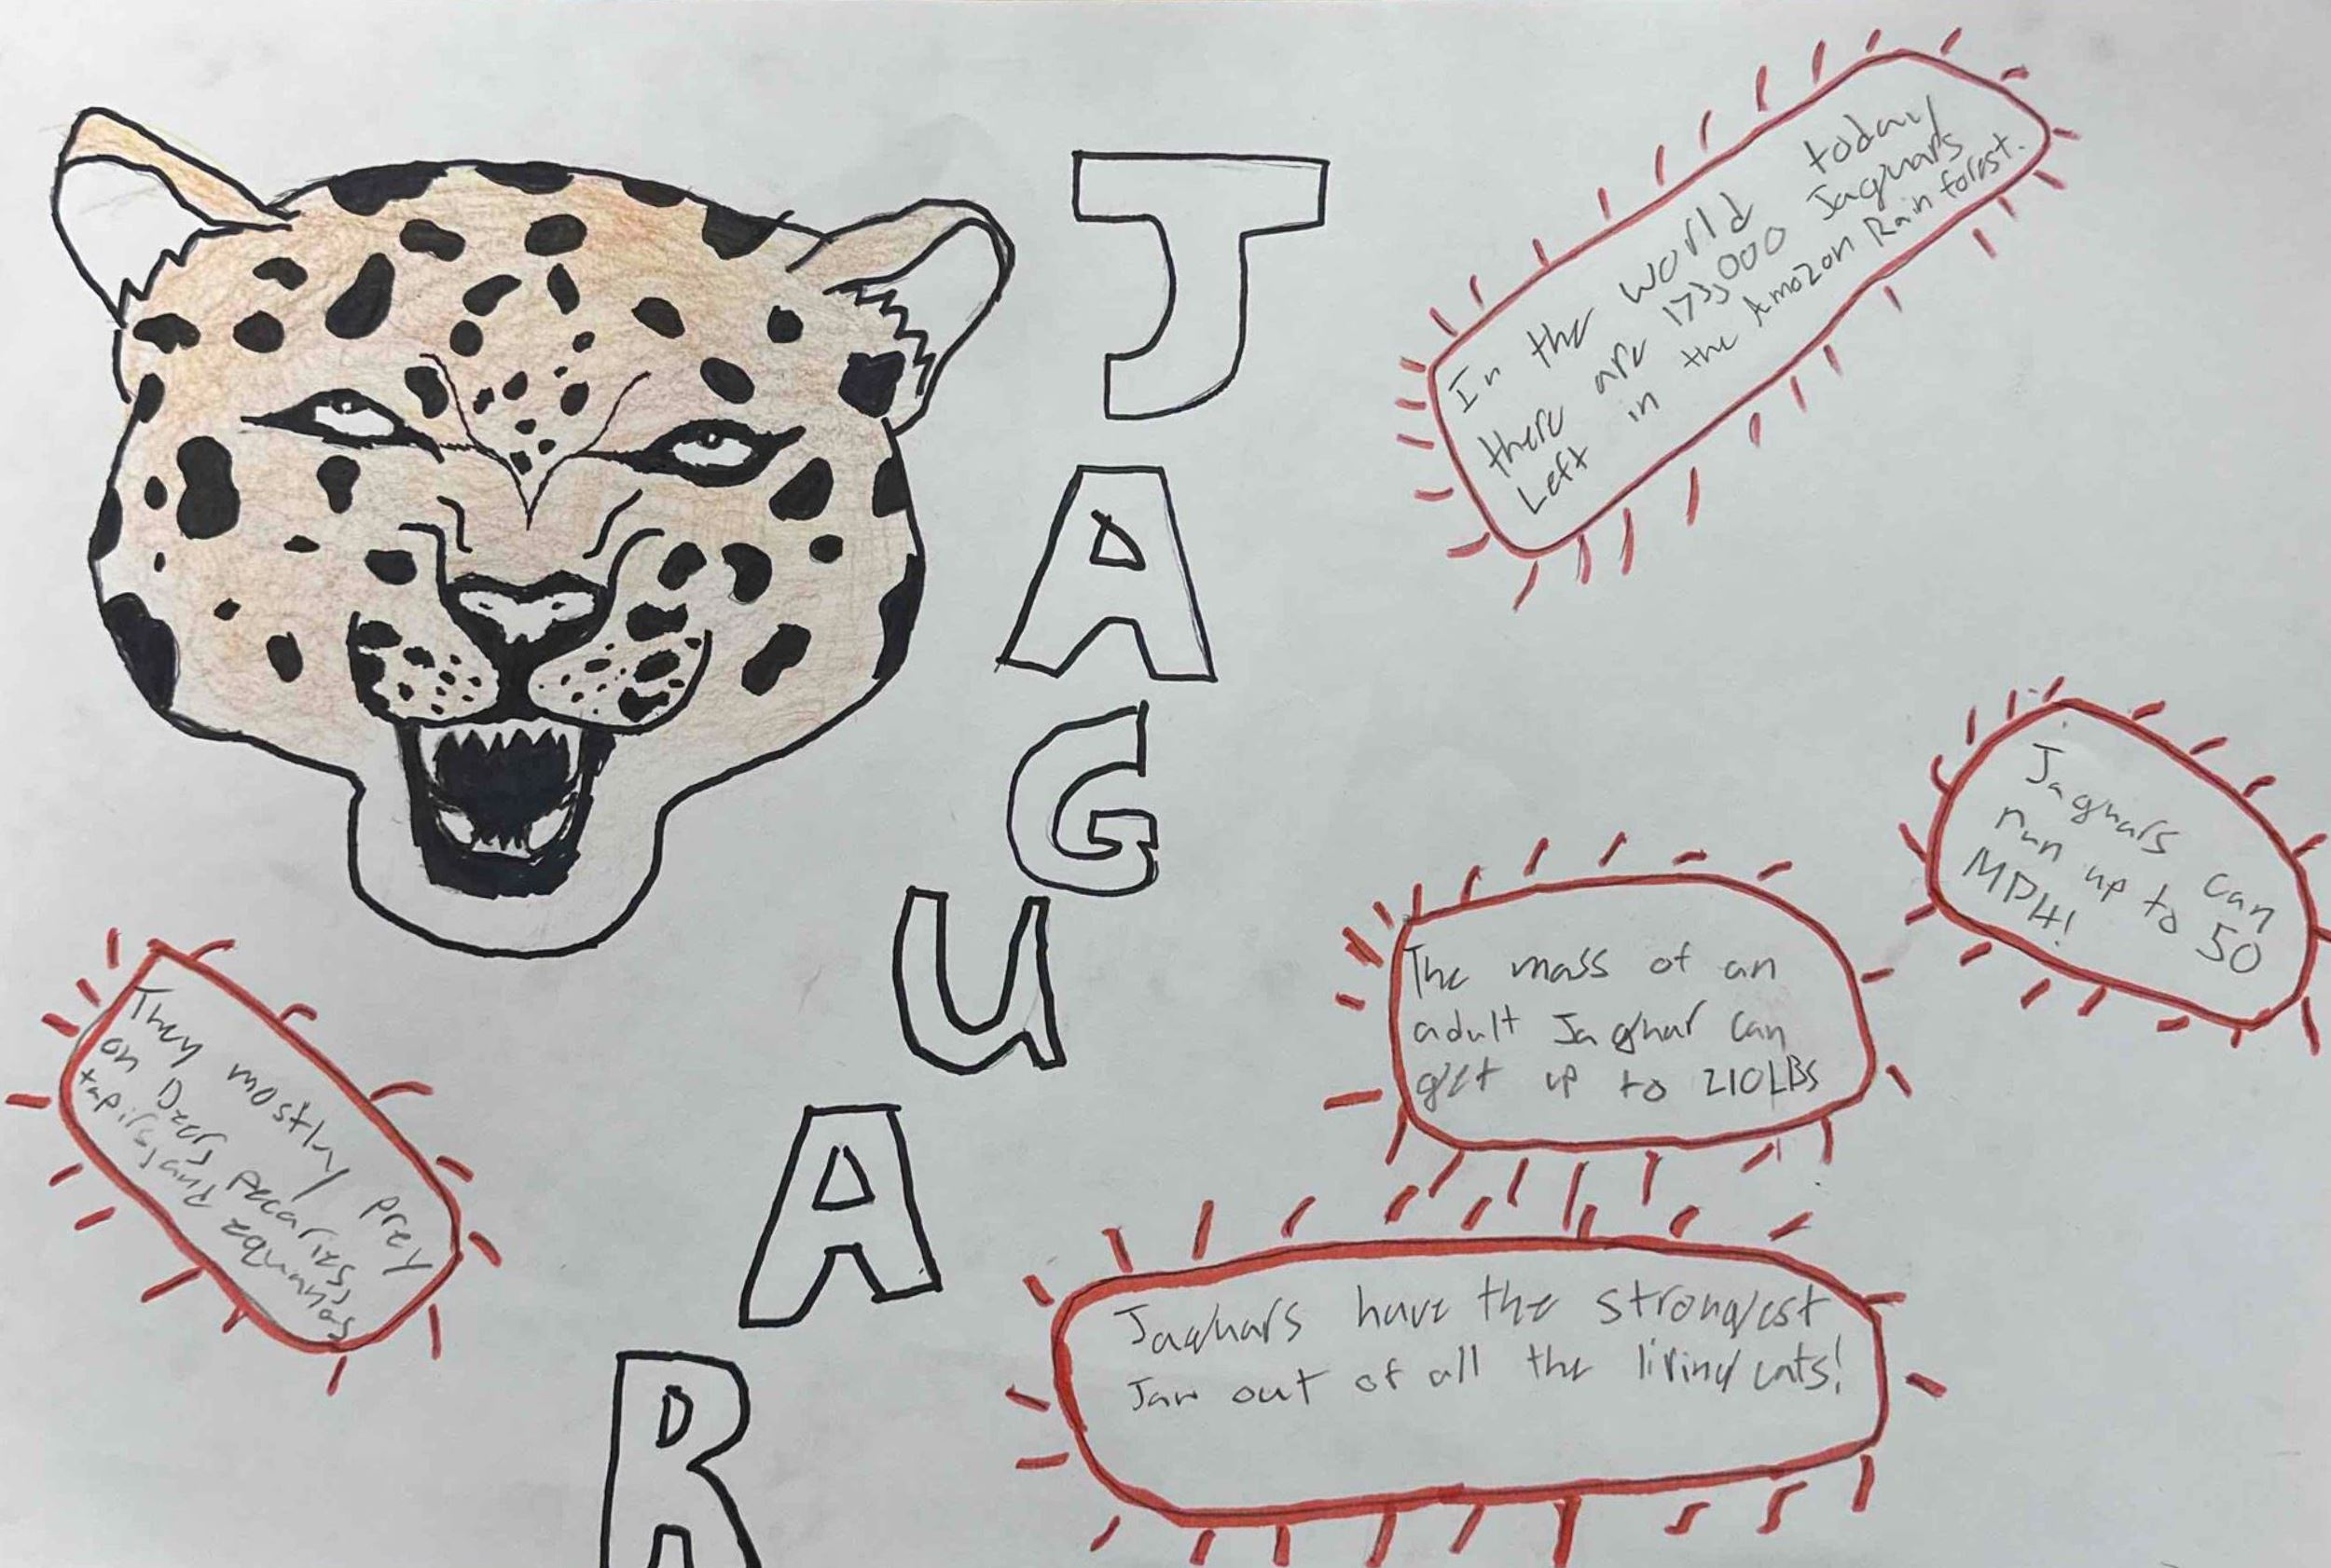 J
A
G
U
A
R
In the world today
there are 173,000 Jaguars
Left in the Amozon Rain forest.
Jaguars can
run up to 50
MPH!
The mass of an
adult Jaguar can
get up to 210LBS
They mostly prey
on Deers, pecaries,
tapirs, and equanas
Jaguars have the strongest
Jaw out of all the living cats!